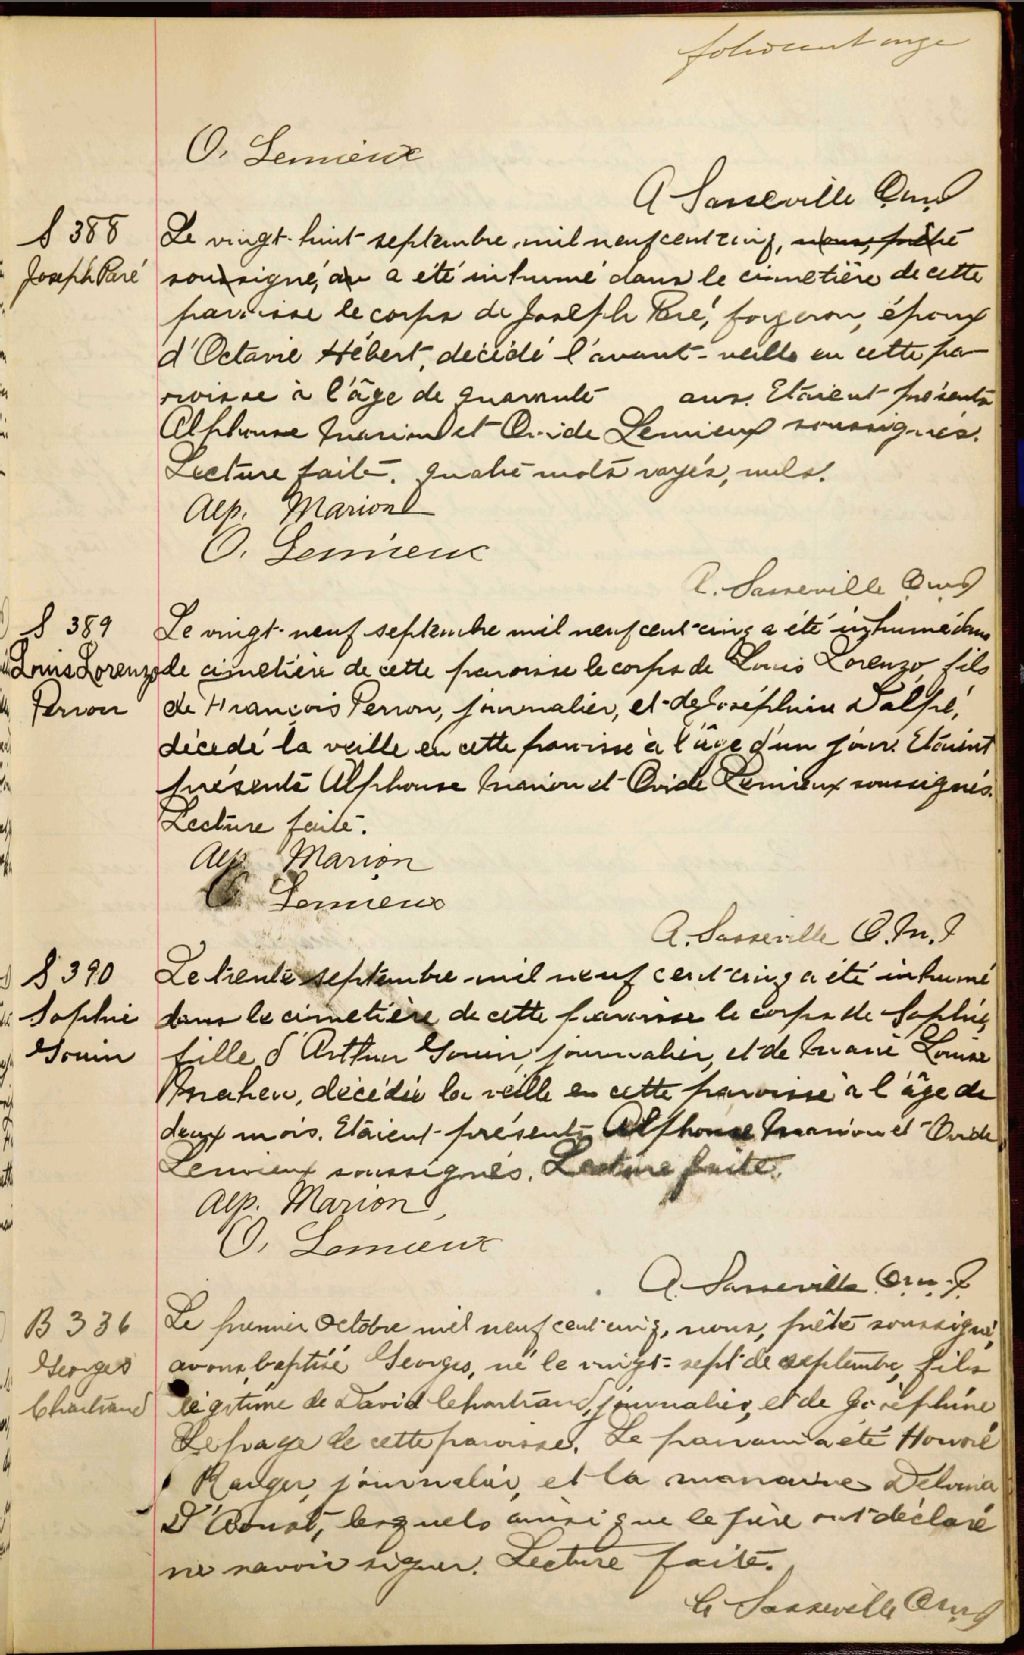 folio cent onze
O. Lemieux
A Sasseville O.m.I
S 388
Joseph Paré
Le vingt-huit septembre mil neuf cent cinq, nous, prêtre
soussigné, av a été inhumé dans le cimetière de cette
paroisse le corps de Joseph Paré, forgeron, époux
d'Octavie Hébert, décédé l'avant-veille en cette pa-
roisse à l'âge de quarante ans. Etaient présents
Alphonse Marion et Ovide Lemieux soussignés.
Lecture faite. quatre mots rayés, nuls.
Alp. Marion
O. Lemieux
A. Sasseville O.m.I
S 389
Louis Lorenzo
Perron
Le vingt-neuf septembre mil neuf cent cinq a été inhumé dans
le cimetière de cette paroisse le corps de Louis Lorenzo, fils
de François Perron, journalier, et de Joséphine Dalpé,
décédé la veille en cette paroisse à l'âge d'un jour. Etaient
présents Alphonse Marion et Ovide Lemieux soussignés.
Lecture faite.
Alp. Marion
O. Lemieux
A. Sasseville O.M.I
S 390
Sophie
Gouin
Le trente septembre mil neuf cent cinq a été inhumé
dans le cimetière de cette paroisse le corps de Sophie,
fille d'Arthur Gouin, journalier, et de Marie Louise
Maheu, décédée la veille en cette paroisse à l'âge de
deux mois. Etaient présents Alphonse Marion et Ovide
Lemieux soussignés. Lecture faite.
Alp. Marion
O. Lemieux
A. Sasseville O.m.I
B 336
Georges
Chartrand
Le premier Octobre mil neuf cent cinq, nous, prêtre soussigné,
avons baptisé Georges, né le vingt-sept de septembre, fils
légitime de David Chartrand, journalier, et de Joséphine
Lepage de cette paroisse. Le parrain a été Honoré
Ranger, journalier, et la marraine Delvina
D'Aoust, lesquels ainsi que le père ont déclaré
ne savoir signer. Lecture faite.
Sasseville O.m.I